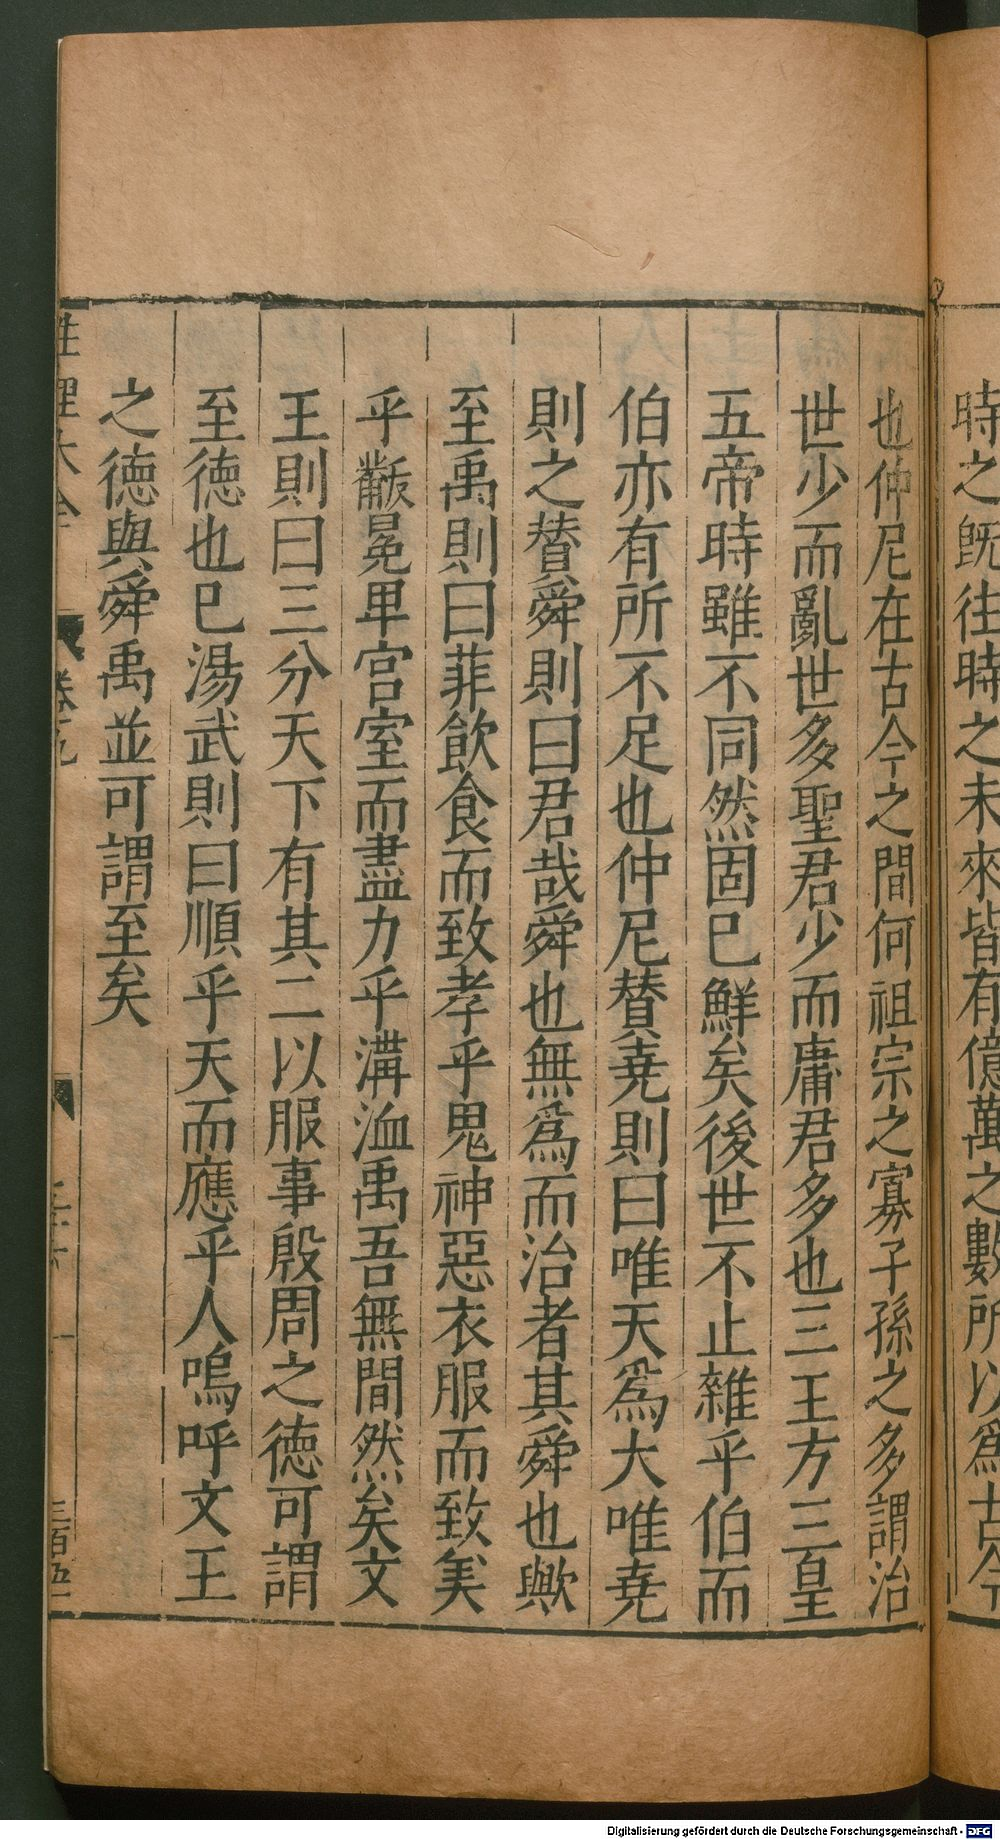 時之旣往時之未來皆有億萬之數所以爲古今
也仲尼在古今之間何祖宗之寡子孫之多謂治
世少而亂世多聖君少而庸君多也三王方三皇
五帝時雖不同然固已鮮矣後世不止雜乎伯而
伯亦有所不足也仲尼賛堯則曰唯天爲大唯堯
則之賛舜則曰君哉舜也無爲而治者其舜也歟
至禹則曰菲飲食而致孝乎鬼神惡衣服而致美
乎黻冕卑宮室而盡力乎溝洫禹吾無間然矣文
王則曰三分天下有其二以服事殷周之德可謂
至德也已湯武則曰順乎天而應乎人嗚呼文王
之德與舜禹並可謂至矣
性理大全
三百五十
Digitalisierung gefördert durch die Deutsche Forschungsgemeinschaft - DFG